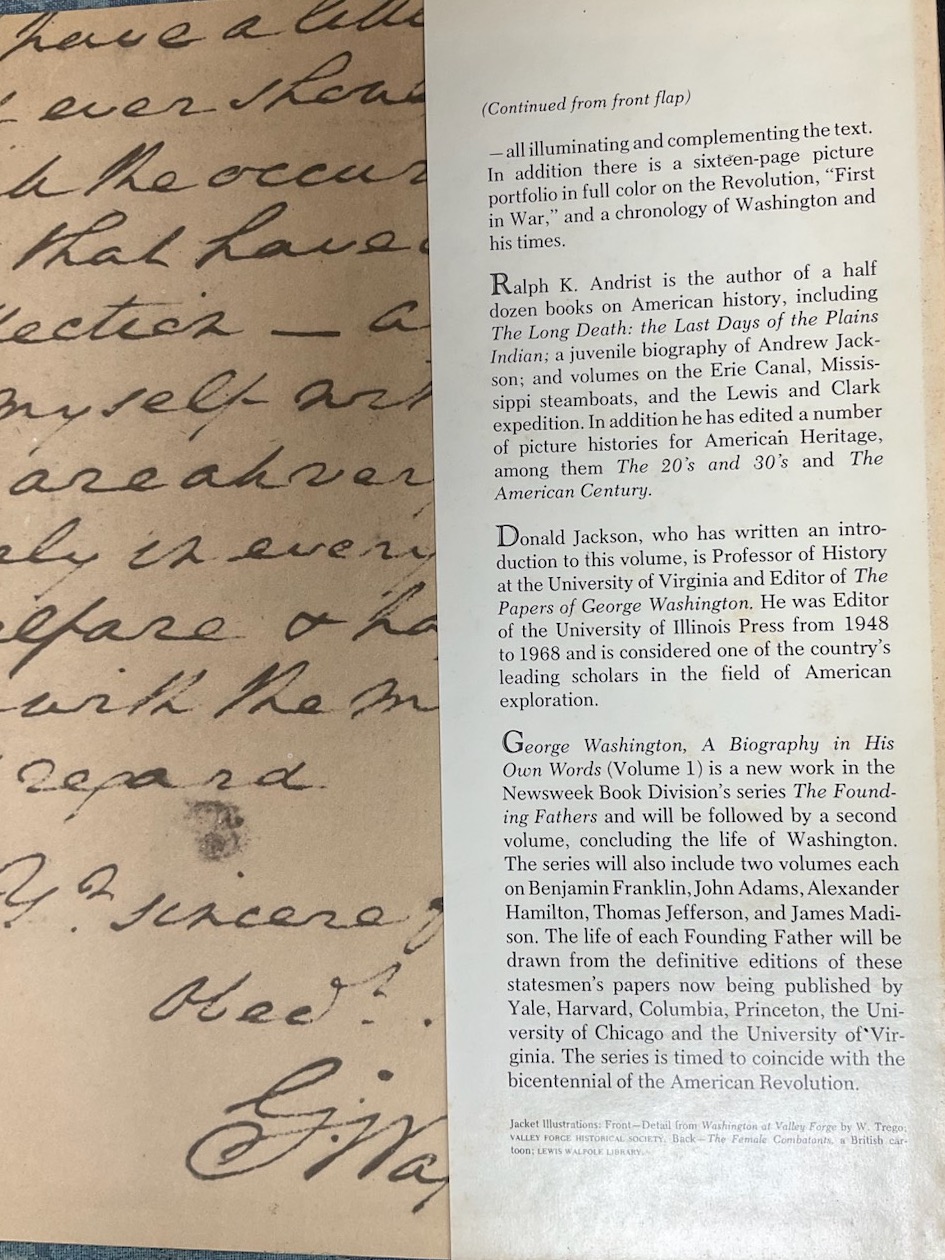 have a
ever
the occur
that have
lection — a
myself
are
rly in every
elfare & ha
with the m
regard
Yr. sincere
Obedt.
G:Wa
(Continued from front flap)
—all illuminating and complementing the text.
In addition there is a sixteen-page picture
portfolio in full color on the Revolution, “First
in War,” and a chronology of Washington and
his times.
Ralph K. Andrist is the author of a half
dozen books on American history, including
The Long Death: the Last Days of the Plains
Indian; a juvenile biography of Andrew Jack-
son; and volumes on the Erie Canal, Missis-
sippi steamboats, and the Lewis and Clark
expedition. In addition he has edited a number
of picture histories for American Heritage,
among them The 20’s and 30’s and The
American Century.
Donald Jackson, who has written an intro-
duction to this volume, is Professor of History
at the University of Virginia and Editor of The
Papers of George Washington. He was Editor
of the University of Illinois Press from 1948
to 1968 and is considered one of the country’s
leading scholars in the field of American
exploration.
George Washington, A Biography in His
Own Words (Volume 1) is a new work in the
Newsweek Book Division’s series The Found-
ing Fathers and will be followed by a second
volume, concluding the life of Washington.
The series will also include two volumes each
on Benjamin Franklin, John Adams, Alexander
Hamilton, Thomas Jefferson, and James Madi-
son. The life of each Founding Father will be
drawn from the definitive editions of these
statesmen’s papers now being published by
Yale, Harvard, Columbia, Princeton, the Uni-
versity of Chicago and the University of Vir-
ginia. The series is timed to coincide with the
bicentennial of the American Revolution.
Jacket Illustrations: Front—Detail from Washington at Valley Forge by W. Trego;
VALLEY FORGE HISTORICAL SOCIETY. Back—The Female Combatants, a British car-
toon; LEWIS WALPOLE LIBRARY.